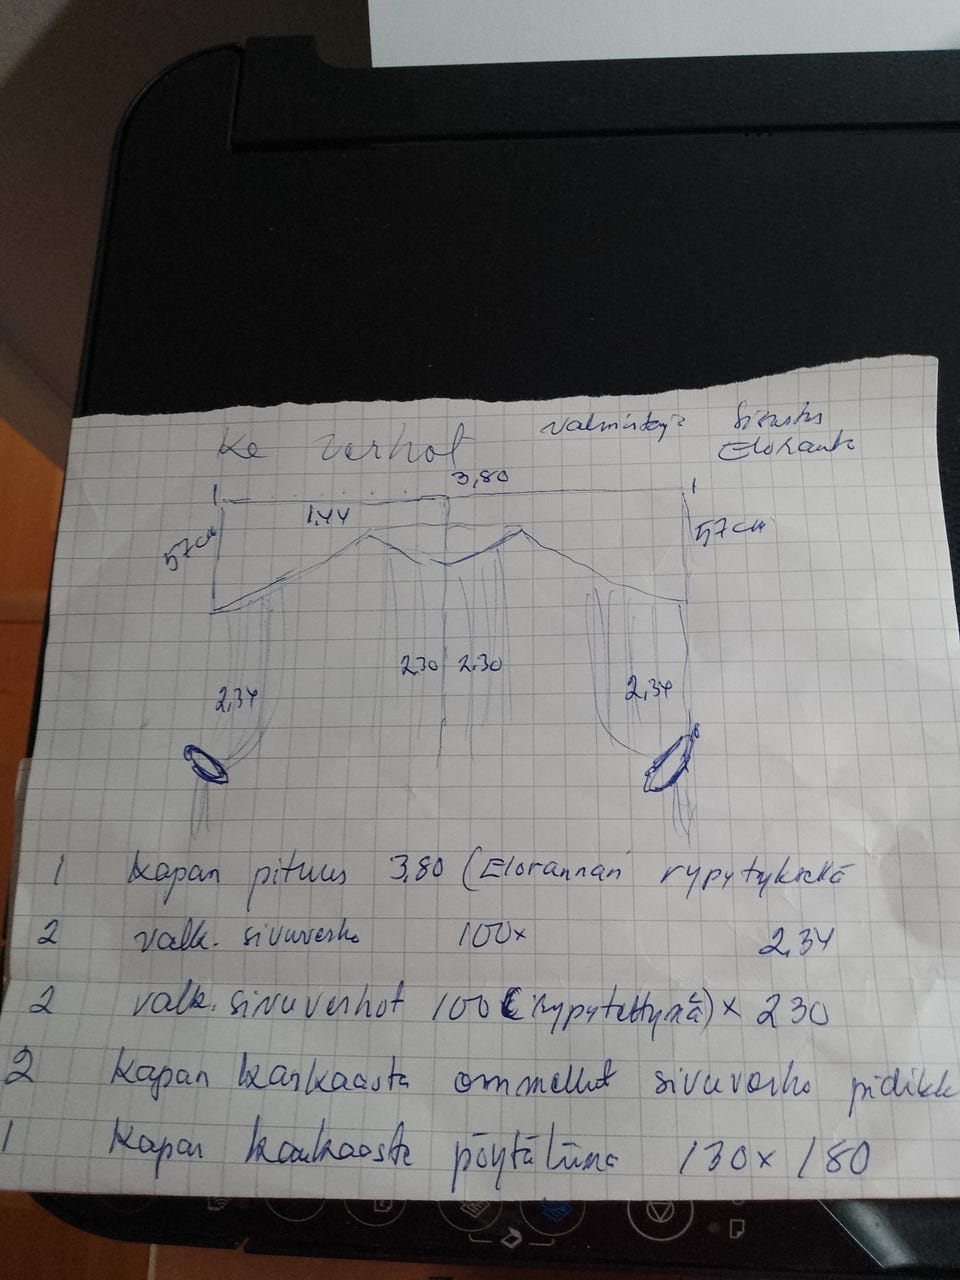 Ke verhot valmistaja Sisustus
Eloranta
3,80
1,44
57 cm
57 cm
2.30 2.30
2,34
2,34
1 Kapan pituus 3,80 (Elorannan rypytyksellä
2 valk. sivuverho 100x 2,34
2 valk. sivuverhot 100 (rypytettynä) x 230
2 Kapan kankaasta ommellut sivuverho pidikk
1 Kapan kankaasta pöytäliina 130x180